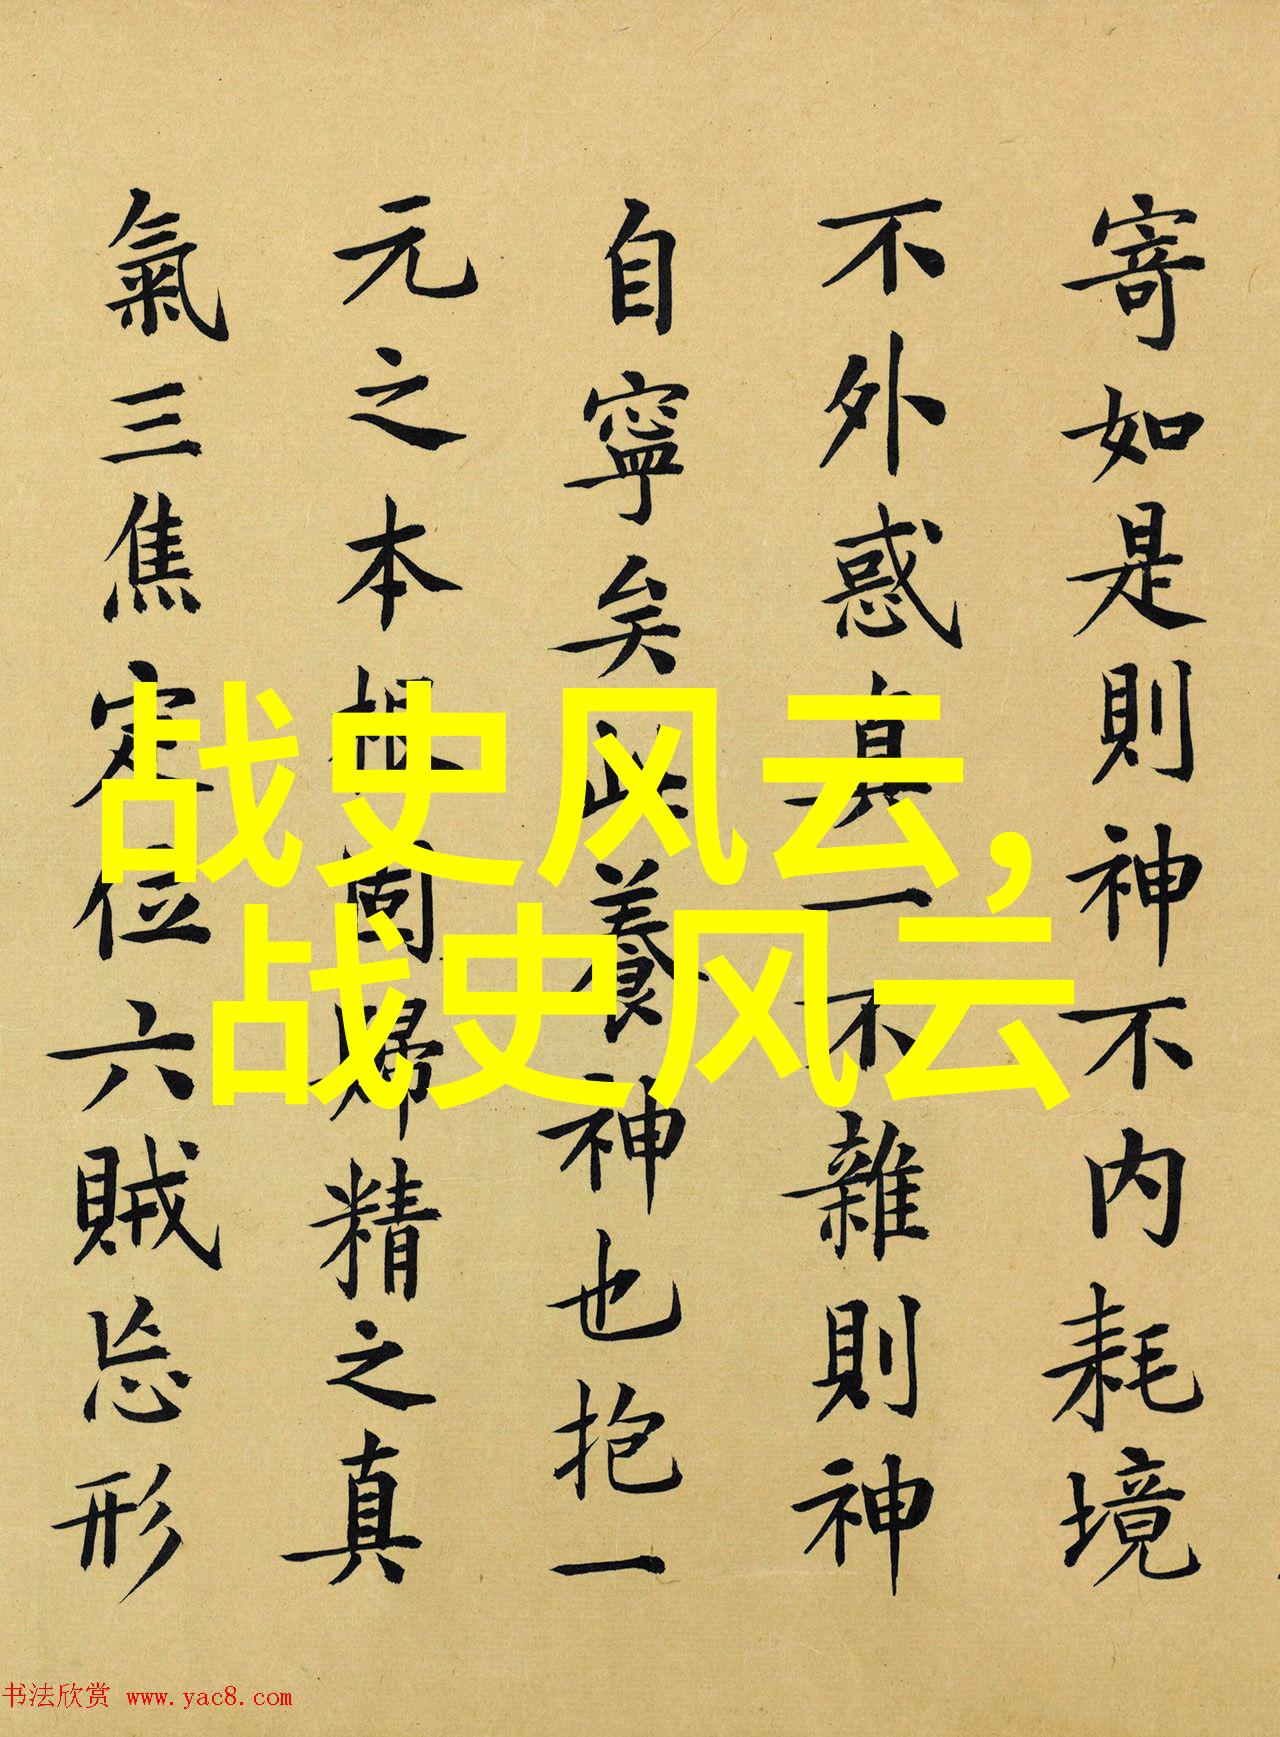 寄如是則神不内耗境
不外惑真一不雜則神
自寧矣此養神也抱一
元之本根固歸精之真
氣三焦定位六賊忘形
战史风云，
战史风云
书法欣赏 www.yac8.com